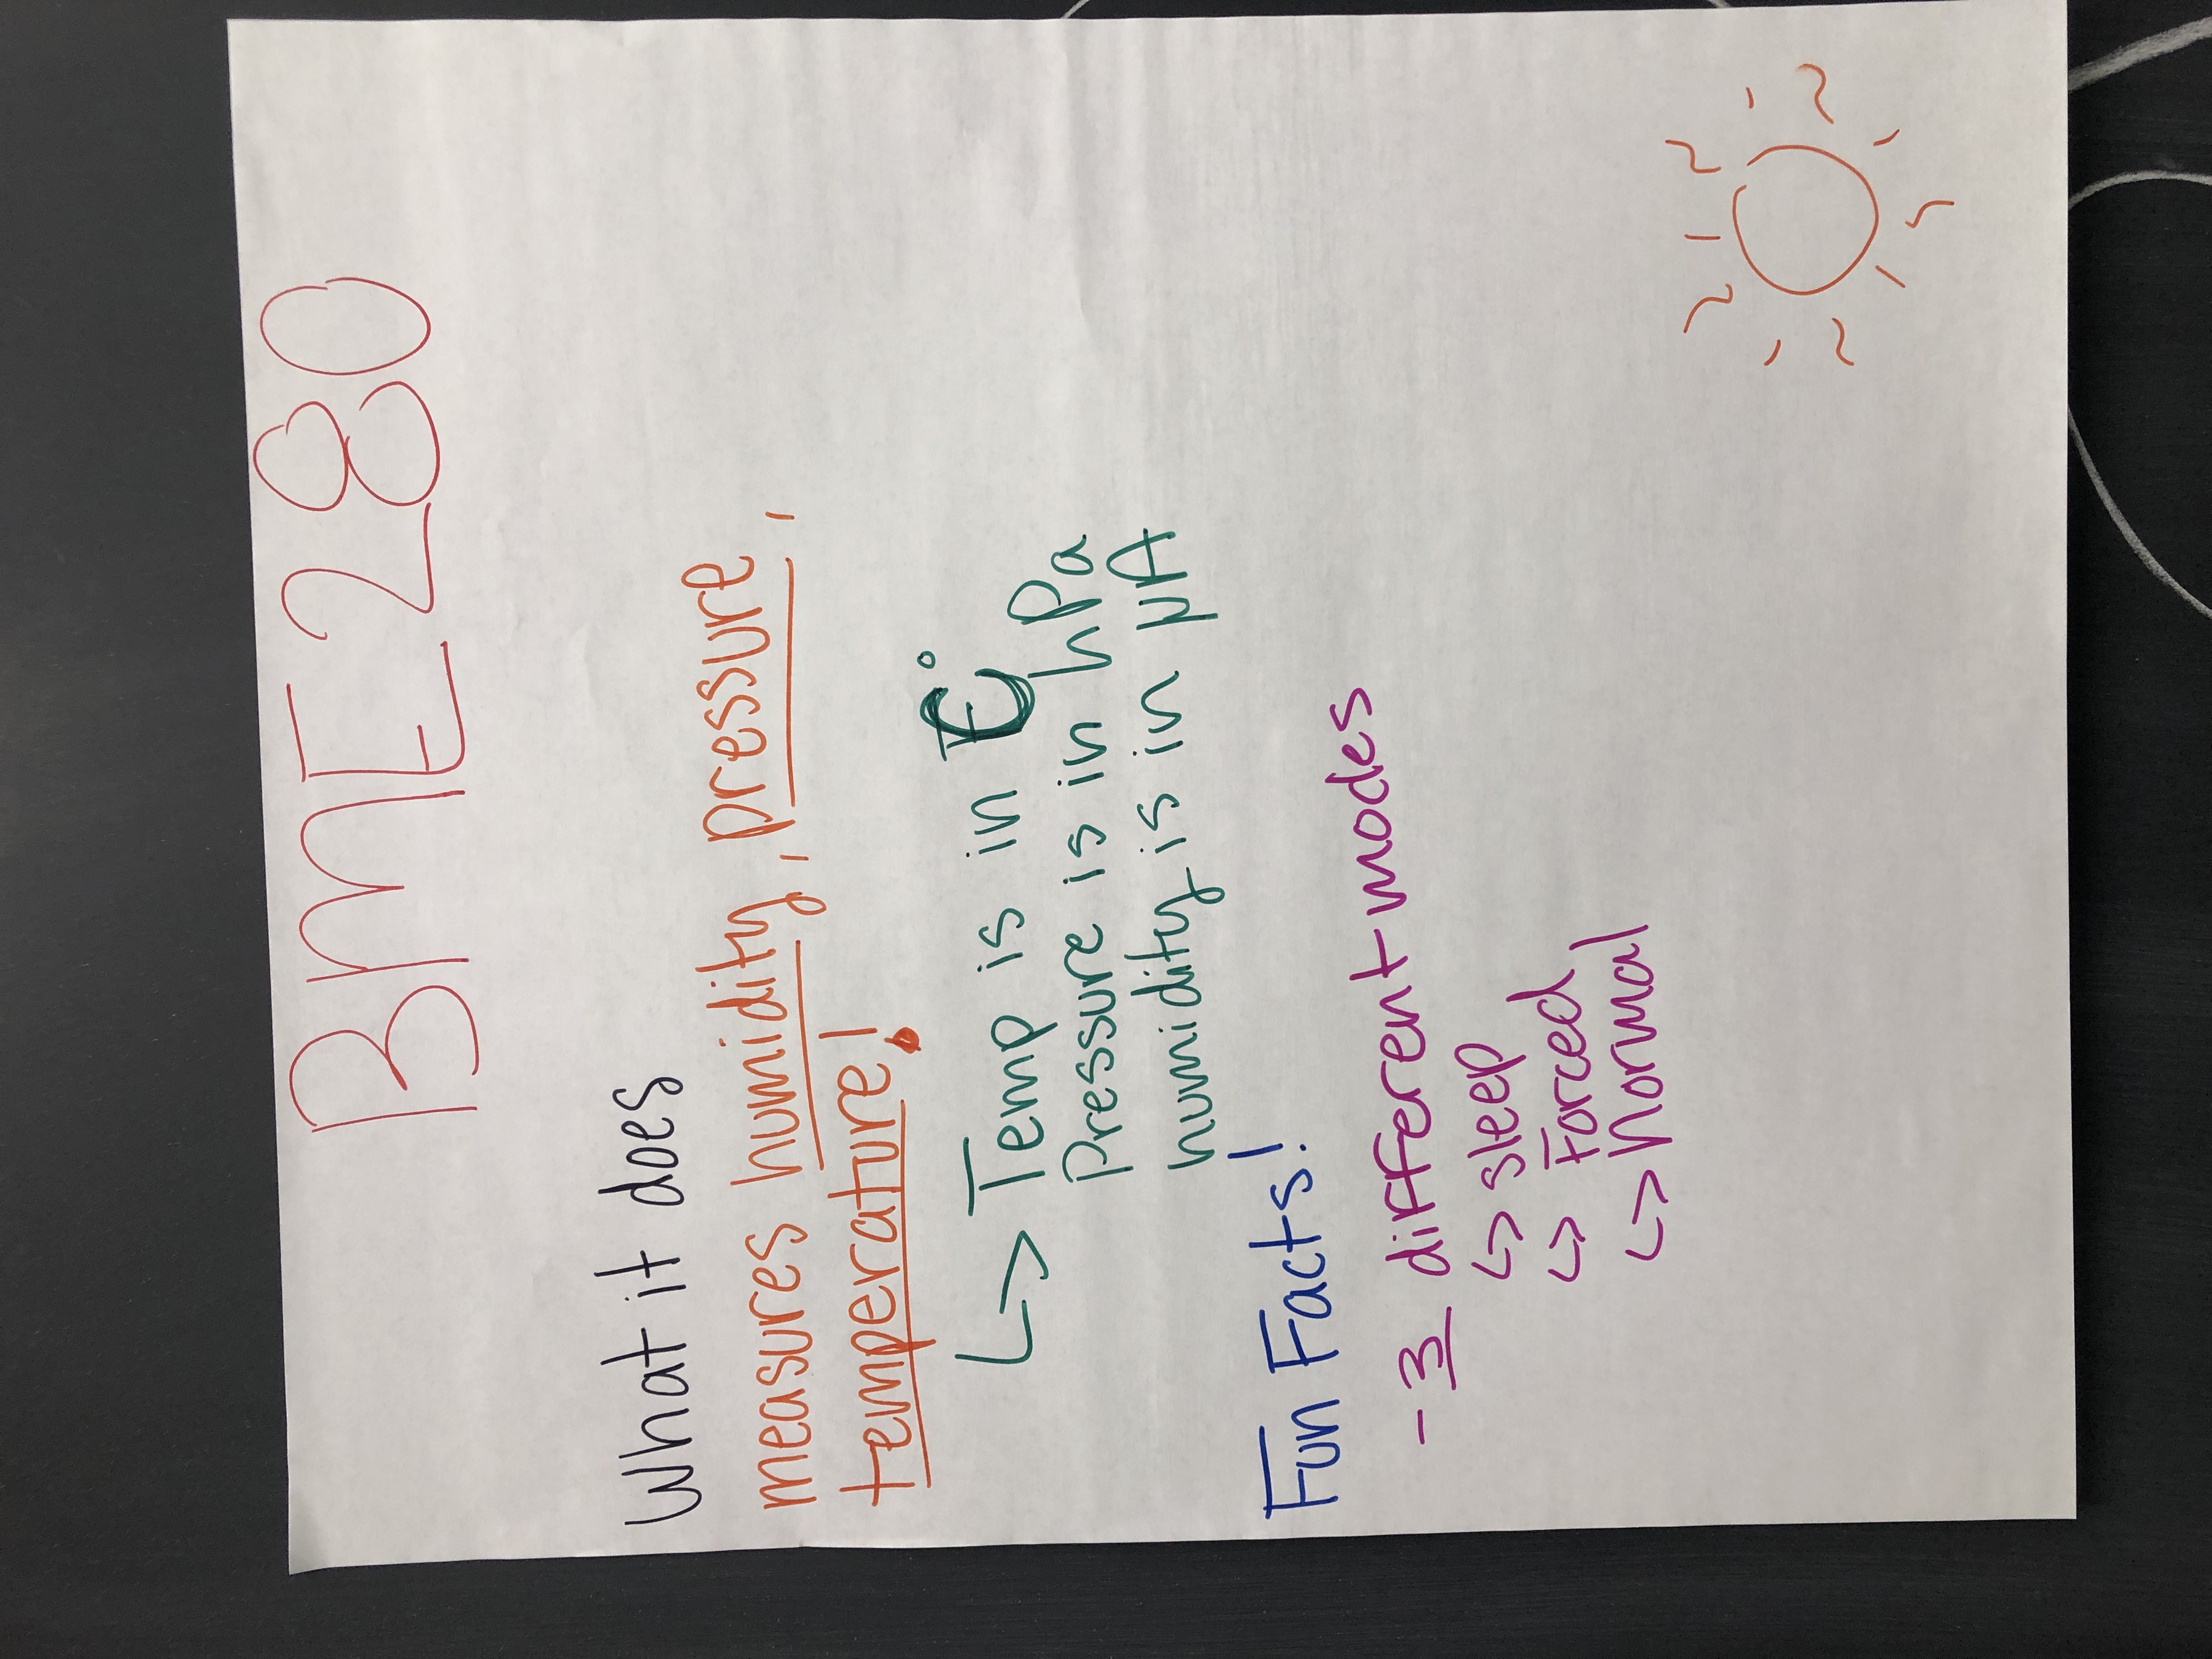 BME280
What it does
measures humidity, pressure,
temperature!
↳ Temp is in C°
Pressure is in hPa
humidity is in μA
Fun Facts!
- 3 different modes
↳ sleep
↳ Forced
↳ Normal